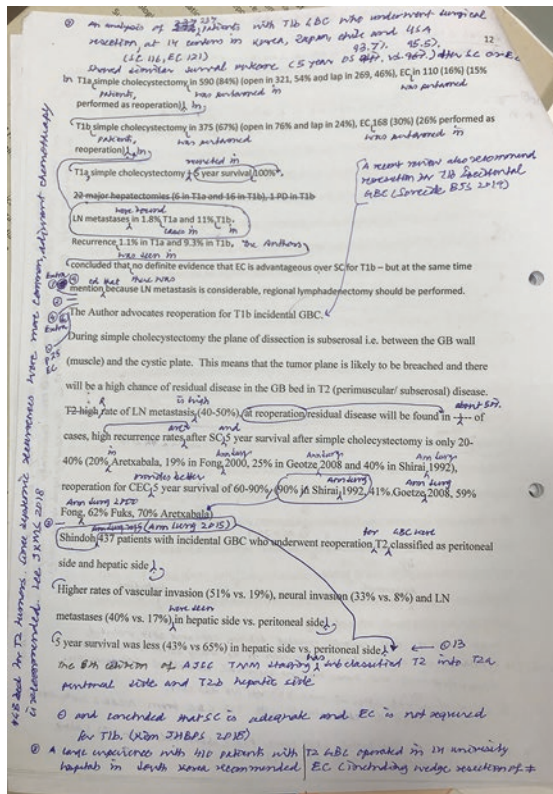 An analysis of 237 patients with T1b GBC who underwent surgical
resection, at 14 centers in Korea, Japan, Chile and USA
12
(SC 116, EC 121) 93.7% 95.5%
showed similar survival outcome (5 year DS vs. ) after SC or EC
In T1a, simple cholecystectomy in 590 (84%) (open in 321, 54% and lap in 269, 46%), EC in 110 (16%) (15%
patients, was performed in was performed in
performed as reoperation) in
T1b simple cholecystectomy in 375 (67%) (open in 76% and lap in 24%), EC 168 (30%) (26% performed as
patients, was performed in was performed in
reoperation) in
resulted in
T1a, simple cholecystectomy 5 year survival 100%.
A recent review also recommend
reresection for T1b incidental
GBC (Soreide BJS 2019)
22 major hepatectomies (6 in T1a and 16 in T1b), 1 PD in T1b
were found
LN metastases in 1.8% T1a and 11% T1b.
cases in in
Recurrence 1.1% in T1a and 9.3% in T1b, The Authors
was seen in
concluded that no definite evidence that EC is advantageous over SC for T1b – but at the same time
ed that there was
mention because LN metastasis is considerable, regional lymphadenectomy should be performed.
Extra
The Author advocates reoperation for T1b incidental GBC.
Extra
During simple cholecystectomy the plane of dissection is subserosal i.e. between the GB wall
(muscle) and the cystic plate. This means that the tumor plane is likely to be breached and there
will be a high chance of residual disease in the GB bed in T2 (perimuscular/ subserosal) disease.
is high
T2 high rate of LN metastasis (40-50%), at reoperation residual disease will be found in of
about 57%
cases, high recurrence rates after SC, 5 year survival after simple cholecystectomy is only 20-
and
40% (20% Aretxabala, 19% in Fong 2000, 25% in Geotze 2008 and 40% in Shirai 1992),
in Ann Surg Ann Surg Ann Surg
reoperation for CEC 5 year survival of 60-90% (90% in Shirai 1992, 41% Goetze 2008, 59%
provides better Ann Surg Ann Surg
Ann Surg 2000
Fong, 62% Fuks, 70% Aretxabala)
(Ann Surg 2015) for GBC were
Shindoh 437 patients with incidental GBC who underwent reoperation T2 classified as peritoneal
side and hepatic side
Higher rates of vascular invasion (51% vs. 19%), neural invasion (33% vs. 8%) and LN
have seen
metastases (40% vs. 17%) in hepatic side vs. peritoneal side
5 year survival was less (43% vs 65%) in hepatic side vs. peritoneal side
the 8th edition of AJCC TNM staging has subclassified T2 into T2a
peritoneal side and T2b hepatic side
and concluded that SC is adequate and EC is not required
for T1b. (Kim JHBPS 2018)
A large experience with 410 patients with T2 GBC operated in 14 university
hospitals in South Korea recommended EC (including wedge resection of
GB bed in T2 tumors. Since systemic recurrences were more common, adjuvant chemotherapy
is recommended. Lee JKMS 2018